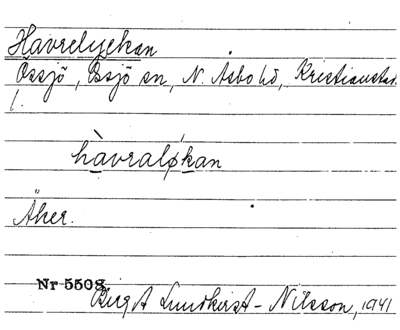 Havrelyckan
Össjö, Össjö sn, N. Åsbo hd, Kristianstad
l.
hàvralỳkan
Åker.
Nr 5508.
Birgit Lundkvist-Nilsson, 1941